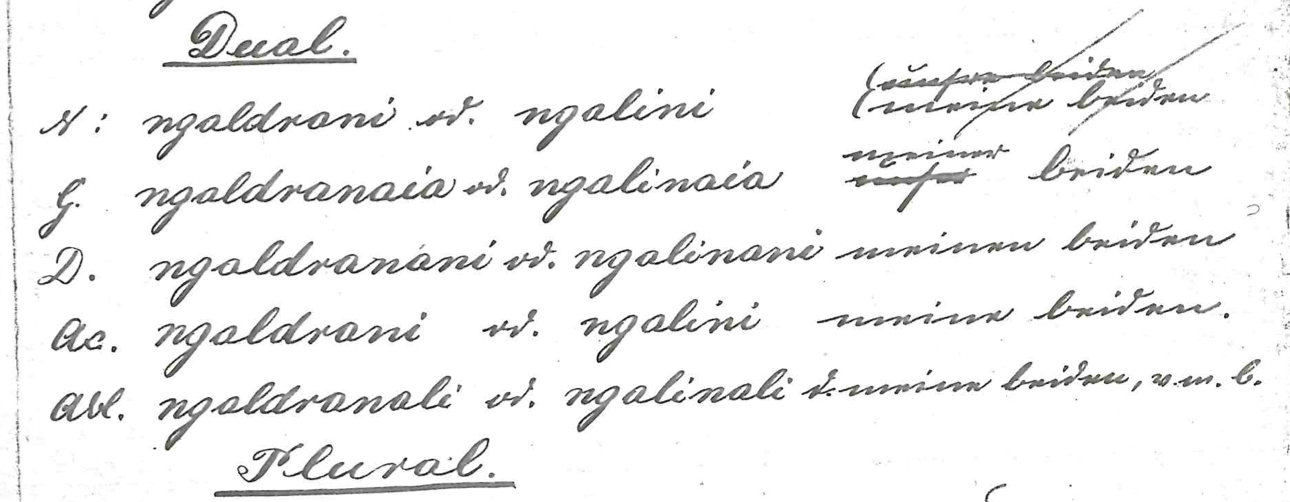 Dual.
(unsre beiden
N: ngaldrani od. ngalini (meine beiden
meiner
G. ngaldranaia od. ngalinaia unser beiden
D. ngaldranani od. ngalinani meinen beiden
Ac. ngaldrani od. ngalini meine beiden.
Abl. ngaldranali od. ngalinali d. meine beiden, v m. b.
Plural.